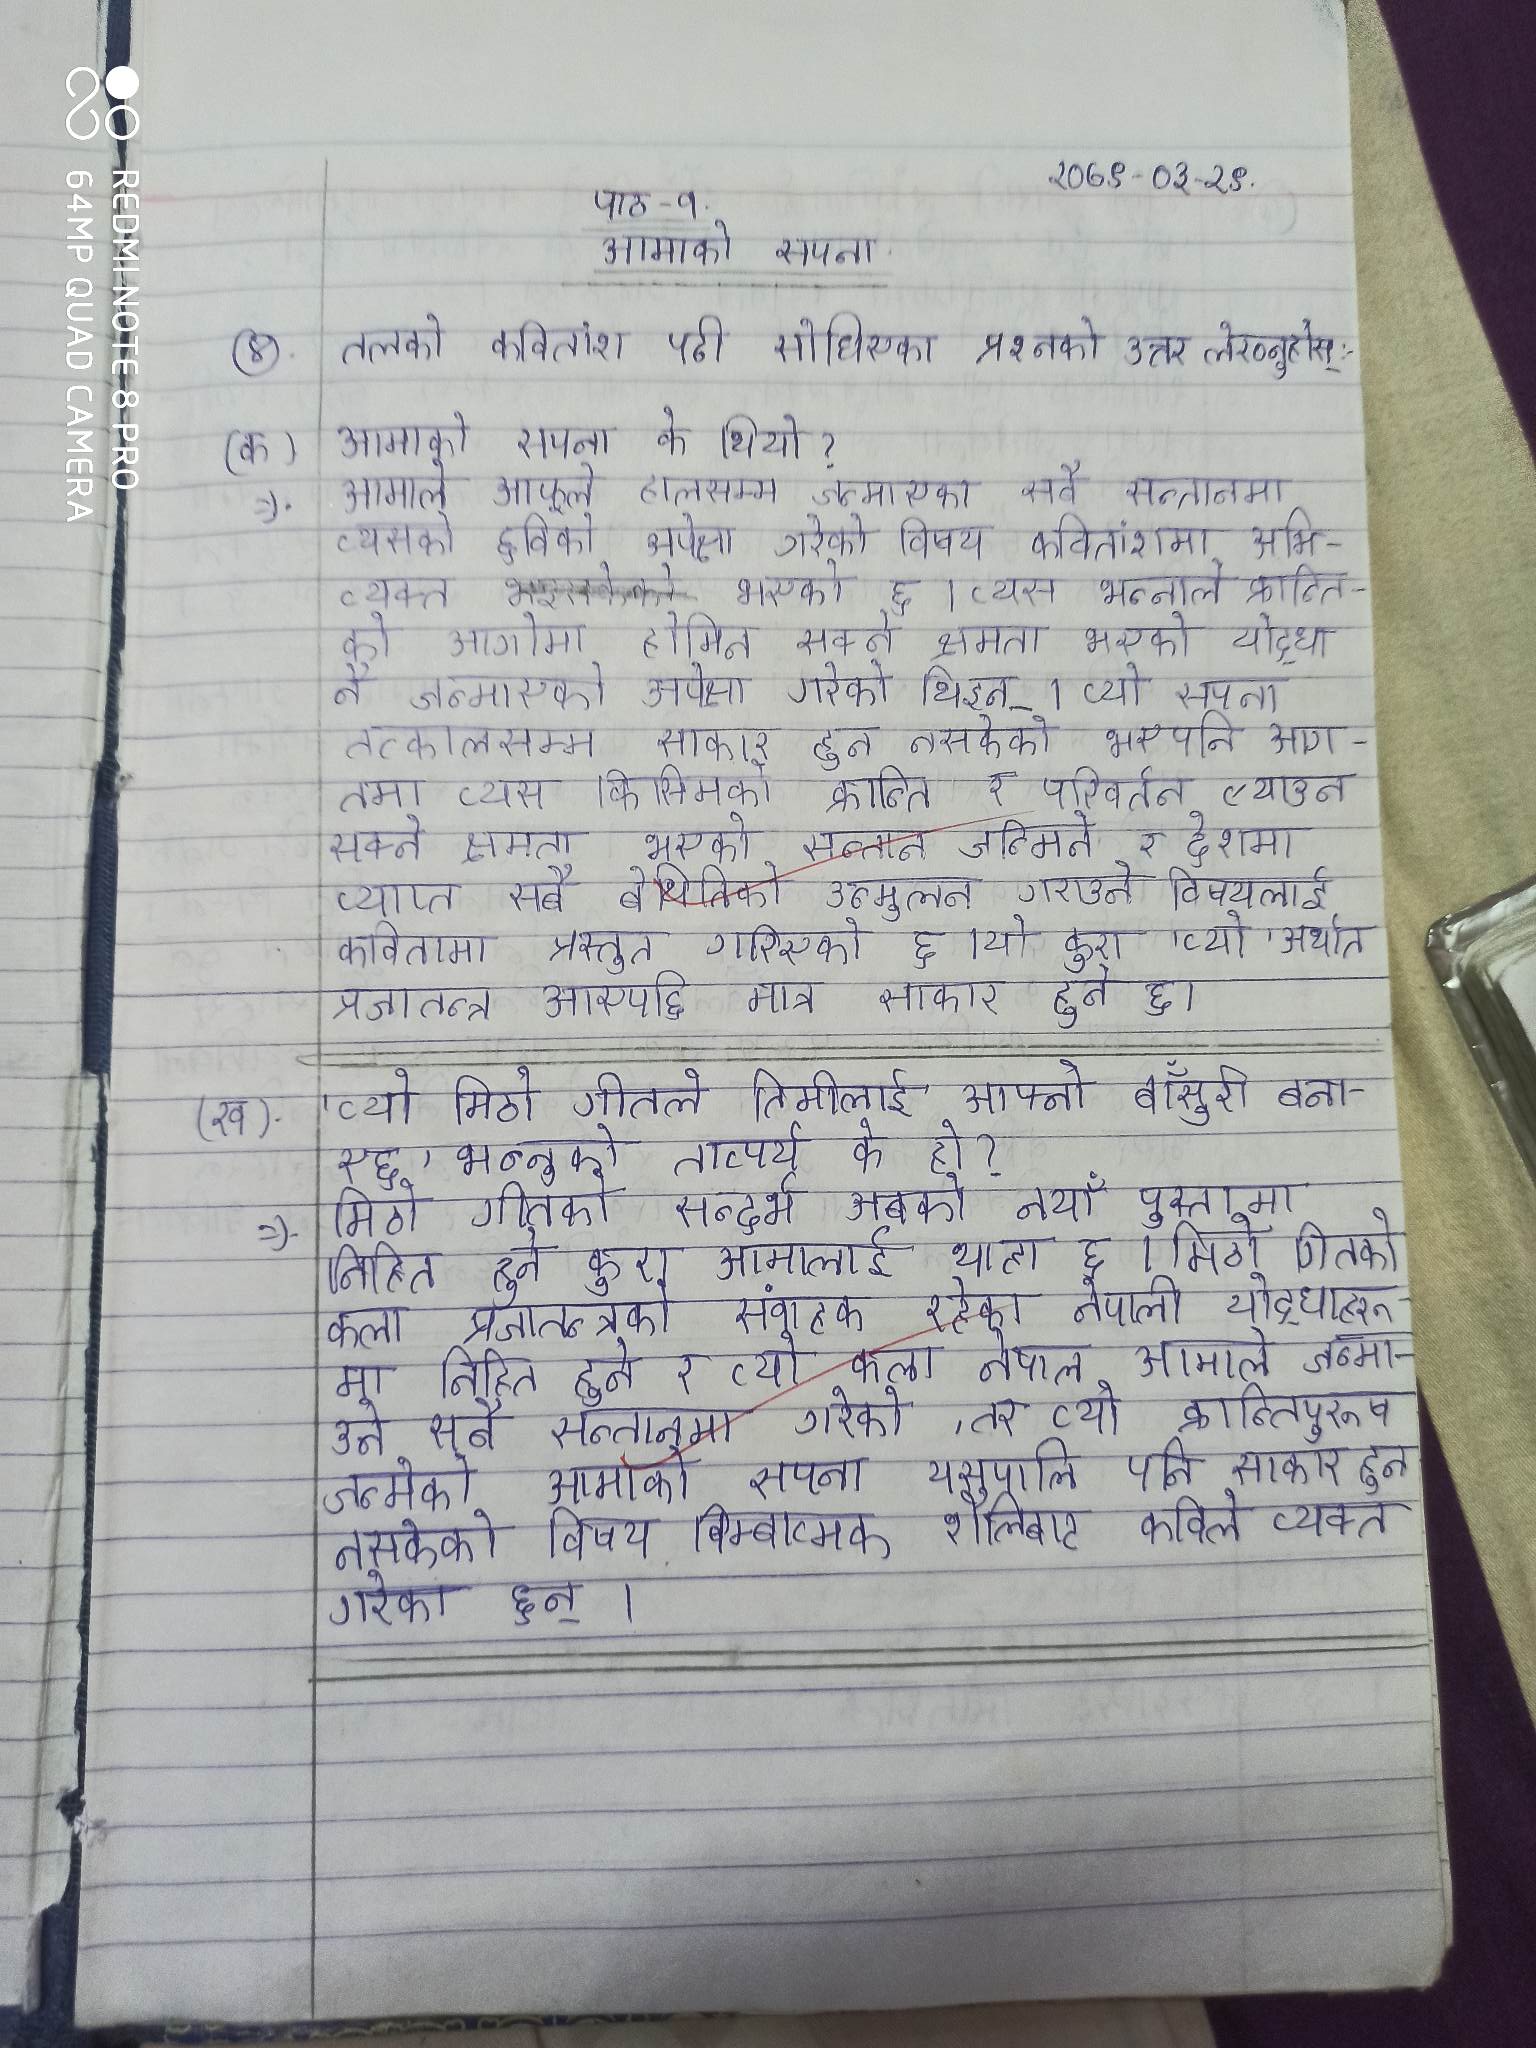 २०७९-०३-२९.
पाठ-१.
आमाको सपना.
(४). तलको कवितांश पढी सोधिएका प्रश्नको उत्तर लेख्नुहोस्:-
(क) आमाको सपना के थियो?
=>. आमाले आफूले हालसम्म जन्माएका सबै सन्तानमा
त्यसको छविको अपेक्षा गरेको विषय कवितांशमा अभि-
व्यक्त भएको छ । त्यस भन्नाले क्रान्ति-
को आगोमा होमिन सक्ने क्षमता भएको योद्धा
नै जन्माएको अपेक्षा गरेको थिइन् । त्यो सपना
तत्कालसम्म साकार हुन नसकेको भएपनि आग-
तमा त्यस किसिमको क्रान्ति र परिवर्तन ल्याउन
सक्ने क्षमता भएको सन्तान जन्मिने र देशमा
व्याप्त सबै बेथितिको उन्मुलन गराउने विषयलाई
कवितामा प्रस्तुत गरिएको छ ।यो कुरा 'त्यो' अर्थात
प्रजातन्त्र आएपछि मात्र साकार हुने छ।
(ख). 'त्यो मिठो गीतले तिमीलाई आफ्नो बाँसुरी बना-
एछ' भन्नुको तात्पर्य के हो?
=>. मिठो गीतको सन्दर्भ अबको नयाँ पुस्तामा
निहित हुने कुरा आमालाई थाहा छ । मिठो गितको
कला प्रजातन्त्रको संवाहक रहेका नेपाली योद्धाहरू-
मा निहित हुने र त्यो कला नेपाल आमाले जन्मा-
उने सबै सन्तानमा गरेको ,तर त्यो क्रान्तिपुरूष
जन्मेको आमाको सपना यसपालि पनि साकार हुन
नसकेको विषय बिम्बात्मक शैलिबाट कविले व्यक्त
गरेका छन् ।
REDMI NOTE 8 PRO
64MP QUAD CAMERA